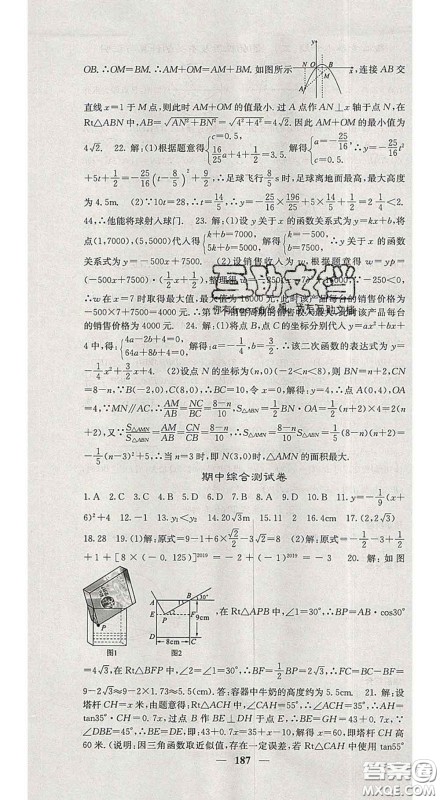 OB,∴OM=BM.∴AM+OM=AM+BM.如图所示,连接 AB 交
直线 x=1 于 M 点,则此时 AM+OM 的值最小.过 A 点作 AN⊥x 轴于点 N,在
Rt△ABN 中,AB=√(AN²+BN²)=√(4²+4²)=4√2.因此 AM+OM 的最小值为
4√2. 22.解:(1)根据题意得{c=0.5, 16/25 a+4+c=3.5. ∴{a=-25/16, c=0.5. ∴y=-25/16 t²
+5t+1/2=-25/16(t-8/5)²+9/2,∴足球飞行8/5 s时,足球离地面最高,最大高度
为 4.5m.(2)令x=28,∴10t=28,∴t=14/5,∴y=-25/16×196/25+5×14/5+1/2=2.1<2.
44,∴他能将球射入球门. 23.解:(1)设 y 关于 x 的函数关系式为 y=kx+b,将
点(1,7000),(5,5000)代入得{k+b=7000, 5k+b=5000. 解得{k=-500, b=7500. ∴y 关于 x 的函数关系
式为 y=-500x+7500;(2)设销售收入为 w,根据题意得 w=yp=
(-500x+7500) 整理得
∴w 在 x=7 时取得最大值,最大值为 16000 元,此时该产品每台的销售价格为
-500×7+7500=4000 元.
的销售价格为 4000 元. 24.解:(1)将点 B,点 C 的坐标分别代入 y=ax²+bx+
4 中,得:{4a-2b+4=0, 64a+8b+4=0. ∴该二次函数的表达式为 y=
-1/4 x²+3/2 x+4.(2)设点 N 的坐标为(n,0)(-2<n<8),则 BN=n+2,CN=
8-n.∵B(-2,0),C(8,0),∴BC=10.令 x=0,解得:y=4,∴点 A(0,4),OA
=4,∵MN∥AC,∴AM/AB=NC/BC=(8-n)/10.∵OA=4,BC=10,∴S△ABN=1/2 BN·OA=1/2(n+2)×4=
2(n+2),又∵S△AMN/S△ABN=AM/AB=CN/CB=(8-n)/10,∴S△AMN=(8-n)/10 S△ABN=1/5(8-n)(n+2)=-
1/5(n-3)²+5.∴当 n=3 时,即 N(3,0)时,△AMN 的面积最大.
期中综合测试卷
1.A 2.A 3.C 4.C 5.B 6.D 7.B 8.B 9.D 10.A 11.y=-1/9(x+
6)²+4 12.-1 13.y₁<y₂ 14.20√3 m 15.2 16.4cm 17.(2,2√3)
18.28 19.(1)解:原式=9-1+√2×√2/2-3√2=8 (2)解:原式=-2
+1+[8×(-0.125)]²⁰¹⁹=-2+(-1)²⁰¹⁹=-3 20.解:如图
P
图1
A E B F P C D 30° 9cm 8cm
图2
,在 Rt△APB 中,∠1=30°,∴BP=AB·cos30°
=4√3,在 Rt△BFP 中,∠2=30°,∴BF=1/2 BP=2√3,∴FC=BC-BF=
9-2√3≈9-2×1.73≈5.5(cm).答:容器中牛奶的高度约为 5.5cm. 21.解,设
塔杆 CH=x m,在 Rt△ACH 中,∵∠CAH=55°,∴∠ACH=35°,∴AH=
tan35°·CH=0.7x.过点 B 作 BE⊥DH 于点 E,∴BE=GH=43+0.7x,∵
∠DBE=45°,∴DE=BE,即:33+x=43+0.7x.解得 x≈60,即塔杆 CH 高
60 米.(说明:因三角函数取近似值,存在一定误差,若 Rt△CAH 中使用 tan55°
187
互助文档
答案圈
MXQE.COM